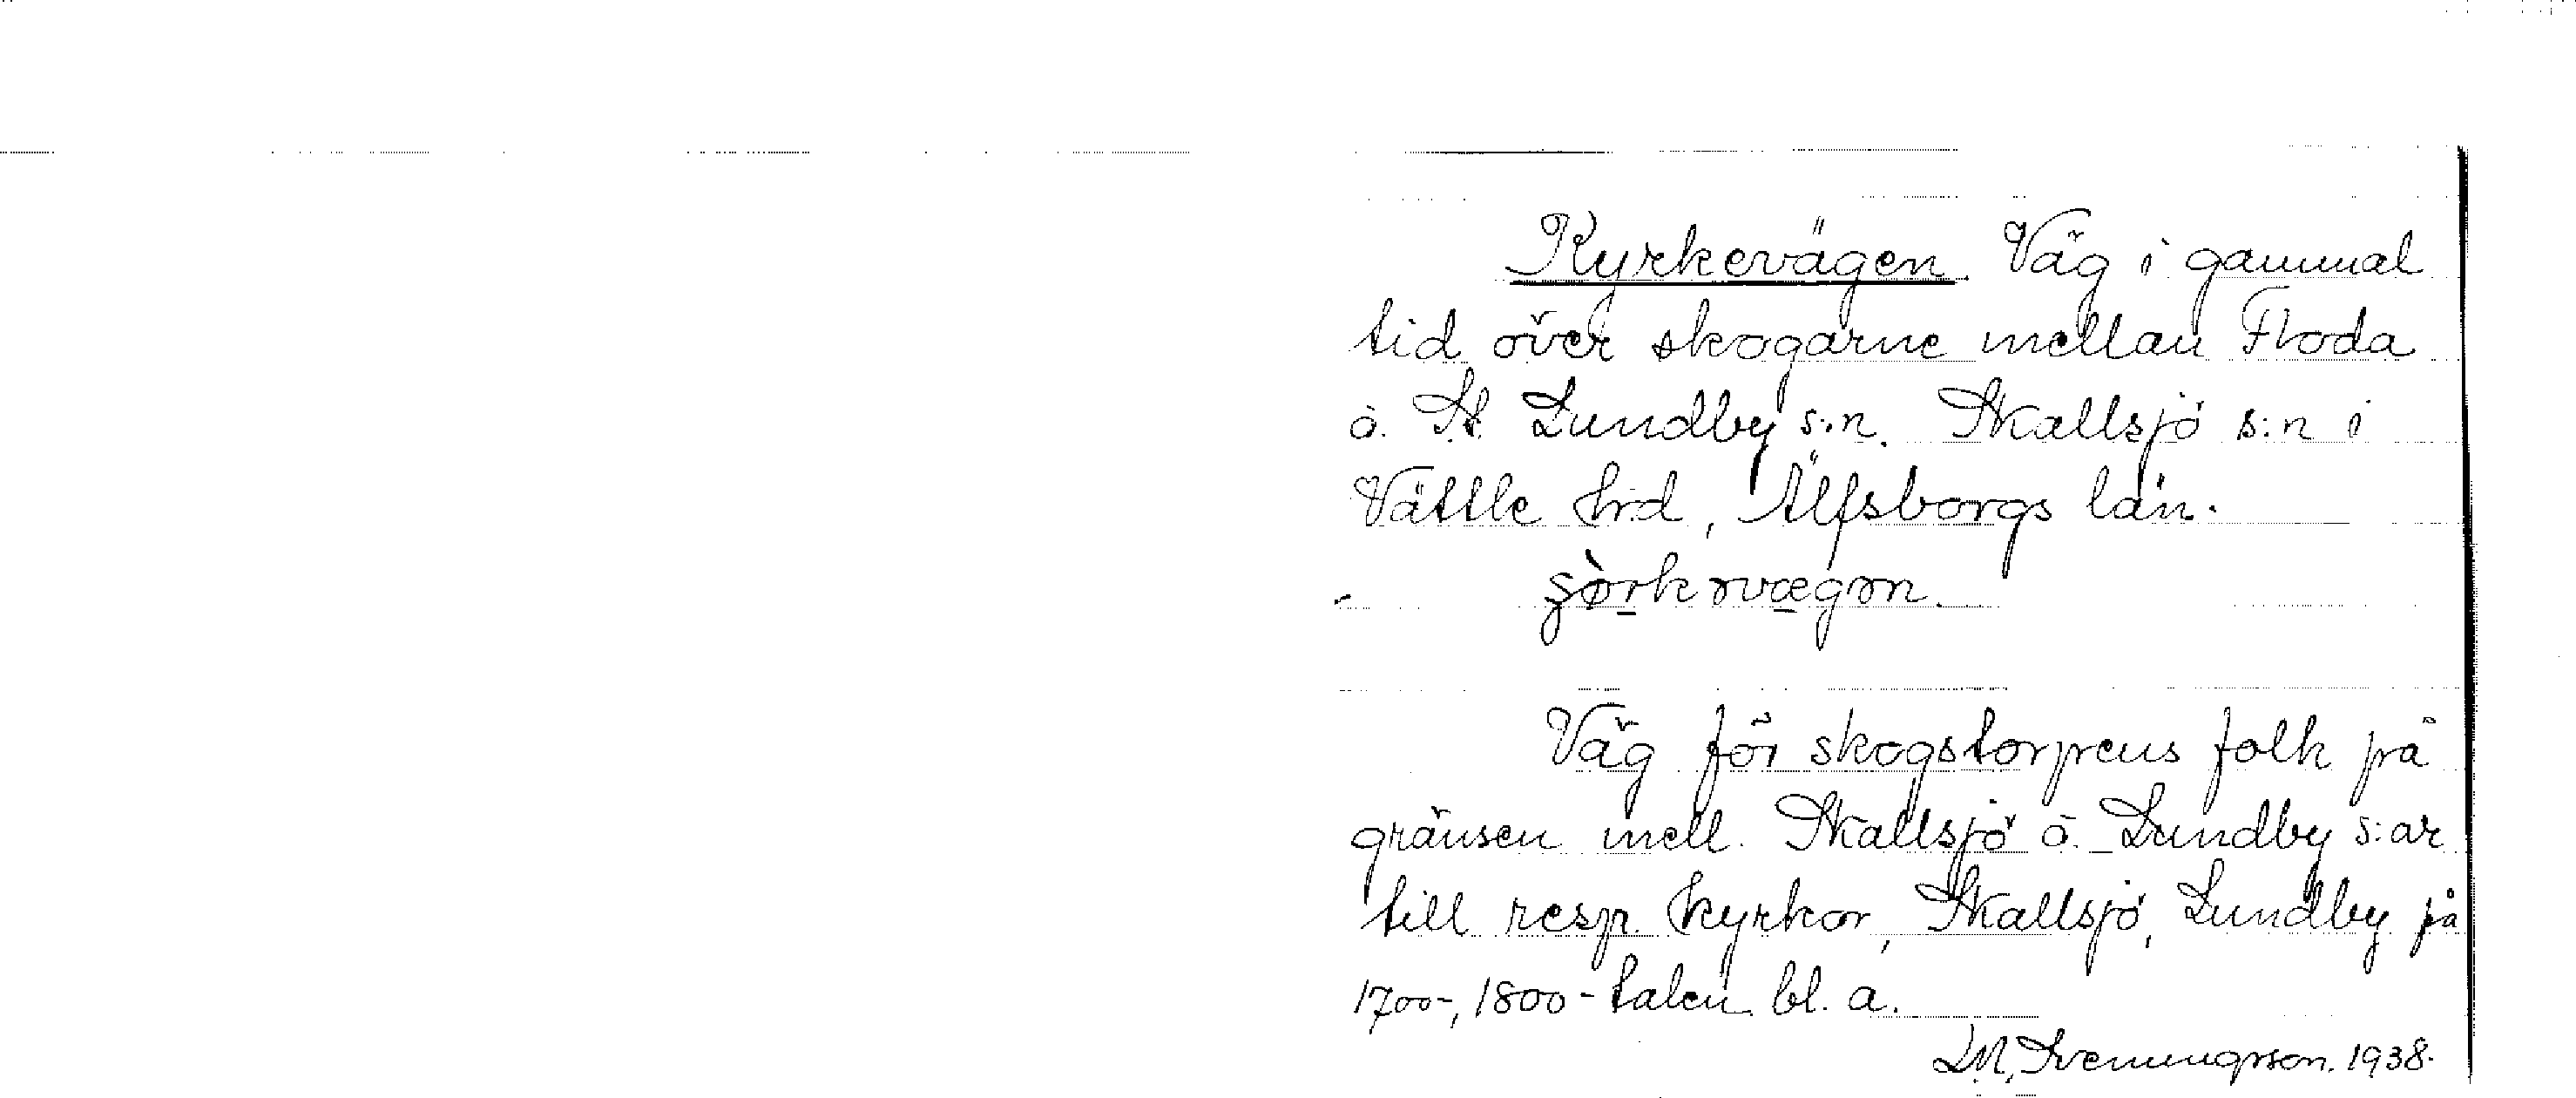 Kyrkevägen. Väg i gammal
tid över skogarne mellan Floda
o. St. Lundby s:n. Skallsjö s:n i
Vättle hrd, Älfsborgs län.
Väg för skogstorpens folk på
gränsen mell. Skallsjö o. Lundby s:ar
till resp. kyrkor, Skallsjö, Lundby på
1700-, 1800-talen bl. a.
D.M. Svenungsson. 1938.